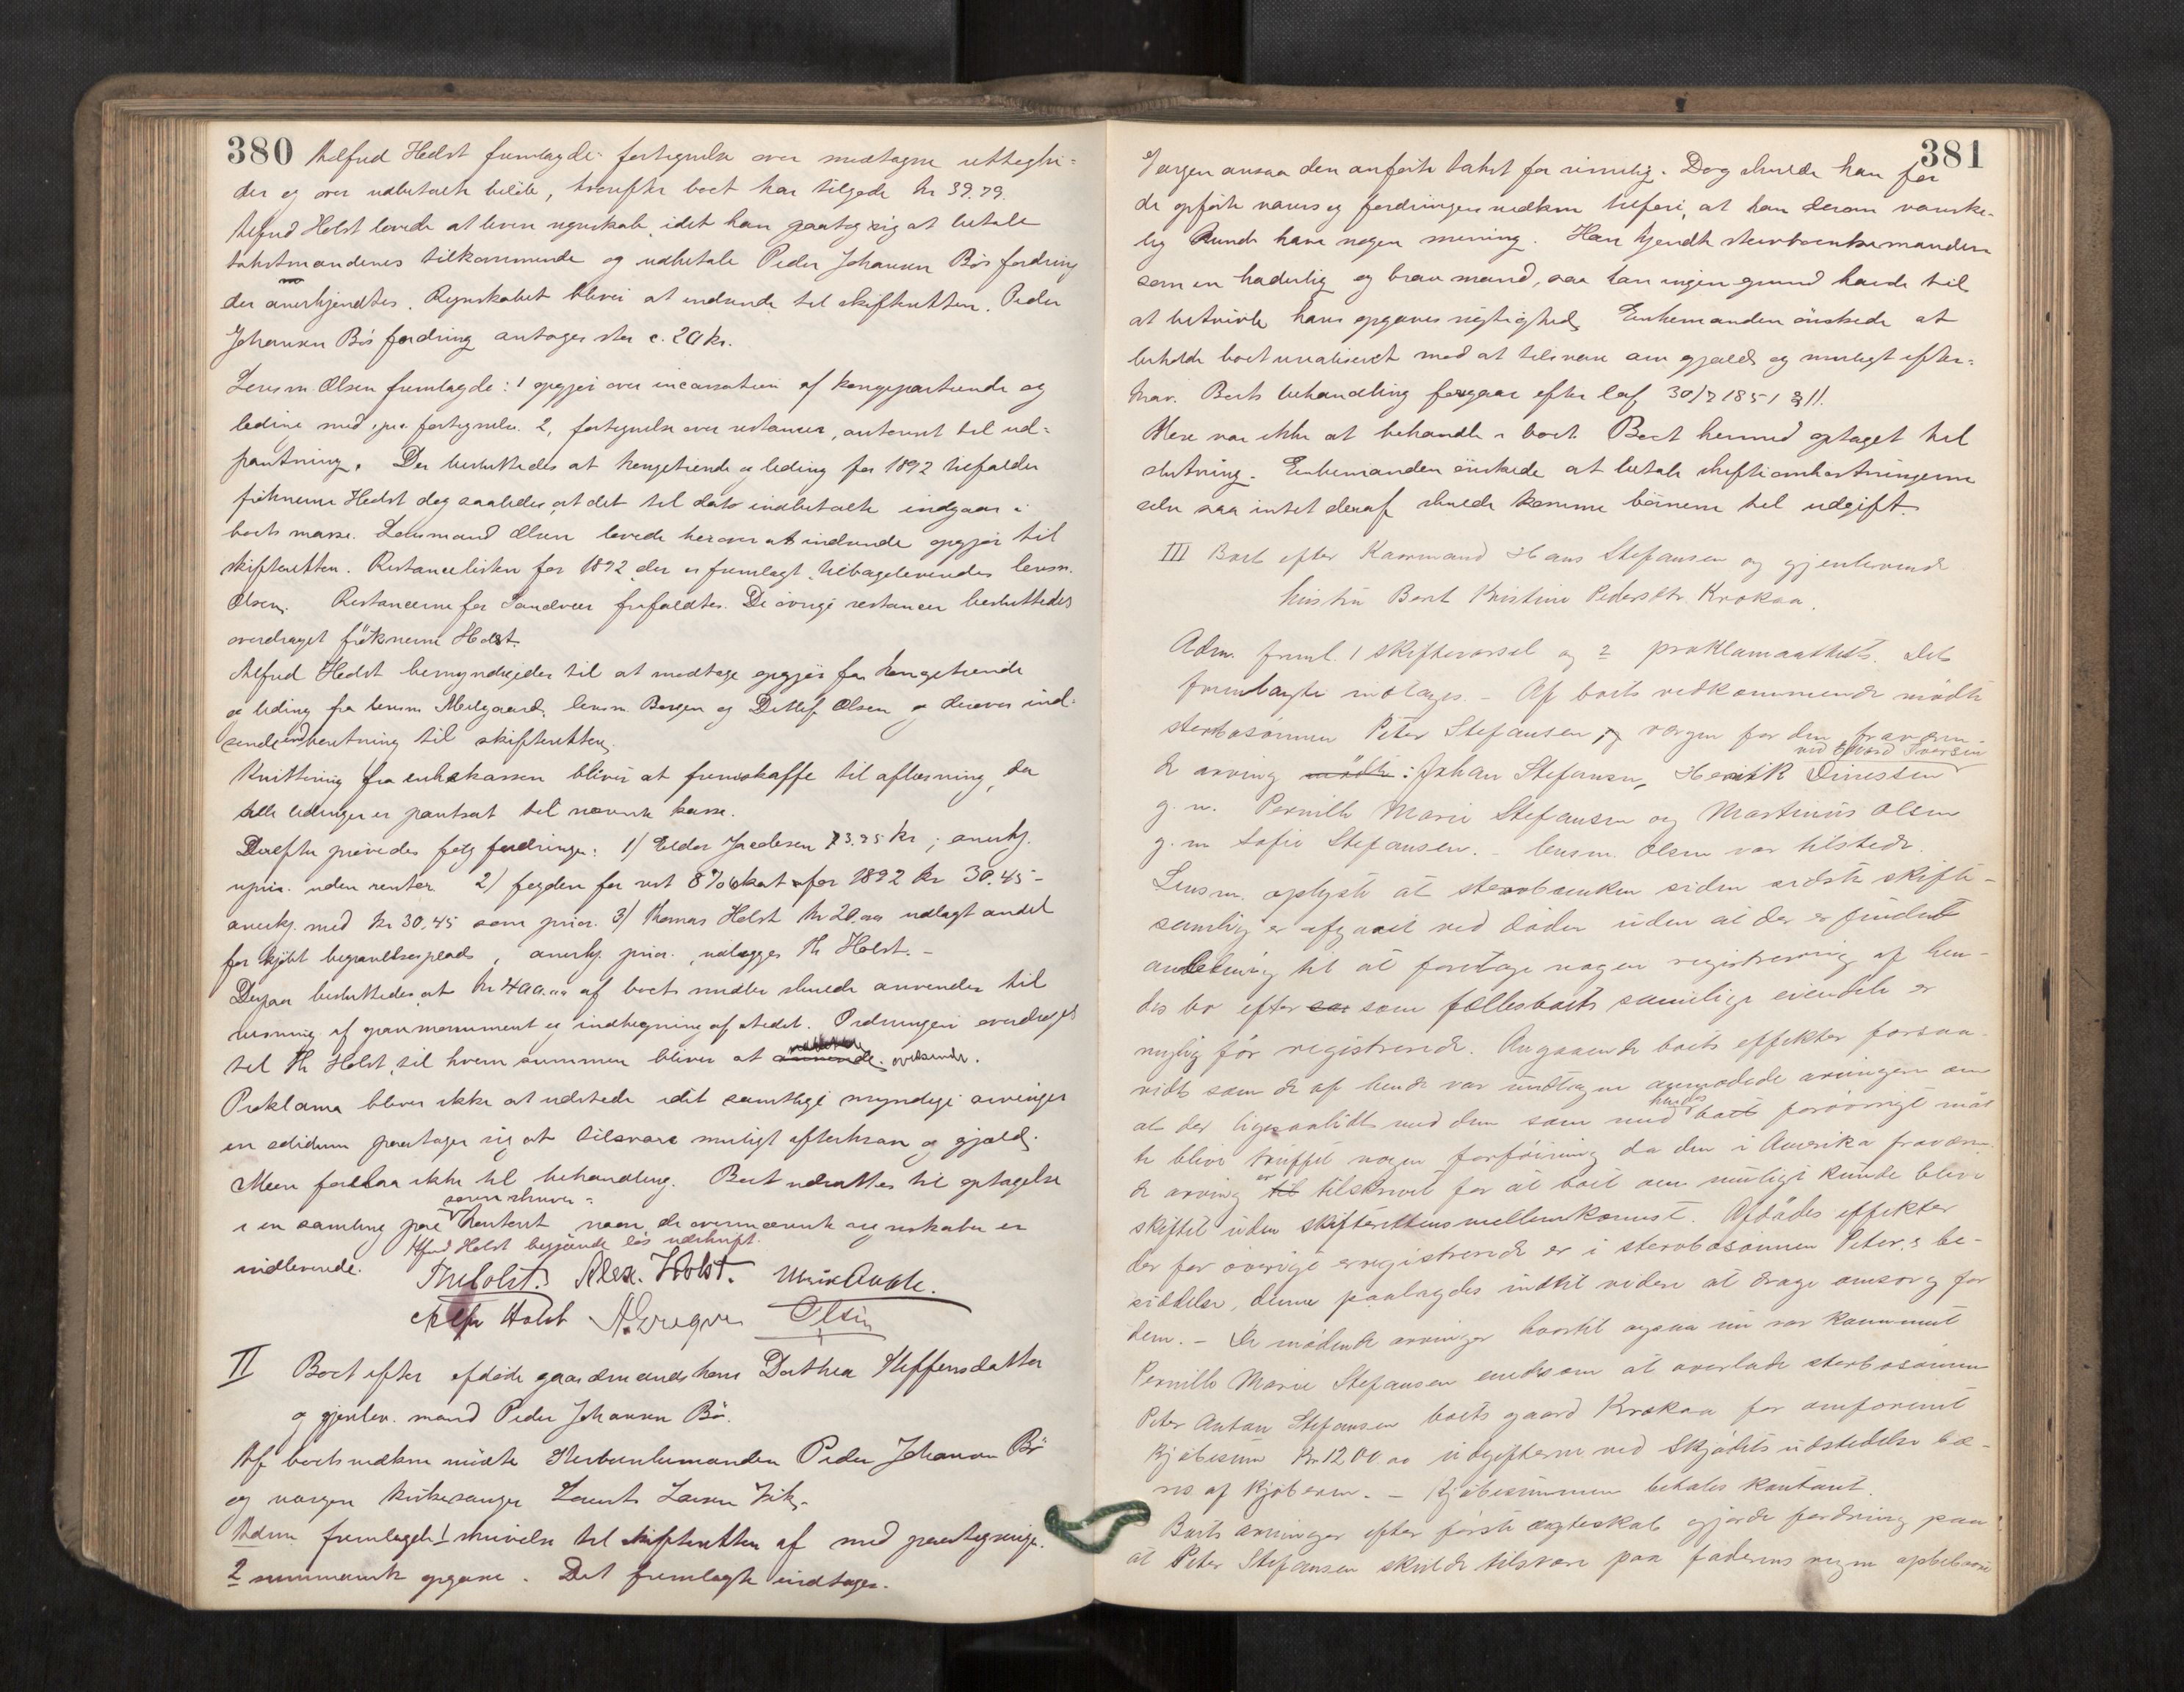 380
Alfred Holst fremlagde fortegnelse over modtagne utteghi-
der og over udbetalte beløb, hvorefter boet har tilgode kr 39.79.
Alfred Holst lovede at levere regnskab, idet han paatog sig at betale
takstmændenes tilkommende og udbetale Peder Johansen Bös fordring
der anerkjendtes. Regnskabet bliver at indsende til skifteretten. Peder
Johansen Bös fordring antoges stor c. 20 kr.
Lensm. Olsen fremlagde: 1 opgjör over incassation af kongepartiende og
leding med spec. fortegnelse. 2, fortegnelse over restancer, anteront til ud-
pantning. Der besluttedes at kongetiende og leding for 1892 tilfalder
frøknerne Holst dog saaledes, at det til dato indbetalte indgaar i
boets masse. Lensmand Olsen lovede herover at indsende opgjör til
skifteretten. Restancelisten for 1892 der er fremlagt, tilbageleveredes lensm.
Olsen. Restancerne for Sandvær frafaldtes. De övrige restancer besluttedes
overdraget fröknerne Holst.
Alfred Holst bemyndigedes til at modtage opgjör for kongetiende
og leding fra lensm Meelgaard, lensm. Borgen og Detlef Olsen og derover ind-
sende indberetning til skifteretten.
Kvittering fra enkekassen bliver at fremskaffe til aflæsning, da
alle ledinger er pantsat til nævnte kasse.
Derefter prövedes følg fordringer: 1) Elder Jacobsen 73.95 kr; anerkj.
uprior. uden renter 2) fogden for rest 8% skat for 1892 kr 30.45 -
anerkj. med kr 30.45 som prior. 3) Thomas Holst kr 20.00 udlagt andel
for kjöbt begravelsesplads, anerkj. prior., udlægges Th Holst. -
Derpaa besluttedes, at kr 400.00 af boets midler skulde anvendes til
reisning af gravmonument og indhegning af stedet. Ordningen overdroges
til Th Holst, til hvem summen bliver at oversende.
Proklama bliver ikke at udstede idet samtlige myndige arvinger
en solidum paatager sig at tilsvare muligt efterkrav og gjæld.
Mere forelaa ikke til behandling. Boet udsattes til optagelse
i en samling paa sorenskriver-
kontoret naar de ovennævnte regnskaber er
indleverede. Alfred Holst begjærede lös udskrift.
Th Holst. Alex. Holst. Ulrik Quale.
Alfr Holst Olsen
II Boet efter afdöde gaardmandskone Dorthea Steffensdatter
og gjenlev. mand Peder Johansen Bö.
Af boets vedkom mödte Sterboenkemanden Peder Johansen Bö
og vergen kirkesanger Laurits Larsen Vik.
Adm fremlagde 1 skrivelse til skifteretten af med paategninger.
2 summarisk opgave. Det fremlagte indtages.
381
Vergen ansaa den anförte takst for rimelig. Dog skulde han for
de opförte varers og fordringers vedkom tilföie, at han derom vanske-
lig kunde have nogen mening. Han kjendte sterboenkemanden
som en hæderlig og brav mand, saa han ingen grund havde til
at betvivle hans opgaves rigtighed. Enkemanden önskede at
beholde boet urealiseret mod at tilsvare am gjæld og muligt efter-
krav. Boets behandling foregaar efter lov 30/7 1851 § 11.
Mere var ikke at behandle i boet. Boet hermed optaget til
slutning. Enkemanden önskede at betale skifteomkostningerne
selv saa intet deraf skulde komme börnene til udgift.
III Boet efter Kaarmand Hans Stefansen og gjenlevende
hustru Berit Kristine Pedersdtr. Krokaa.
Adm. freml. 1 skiftevarsel og 2 proklamaattest. Det
fremlagte indtages. - Af boets vedkommende mödte
sterbosönnen Peter Stefansen, og vergen for den fraværen-
ved Edvard Iversen
de arving mödte: Johan Stefansen, Henrik Dinesten
g. m. Pernille Marie Stefansen og Martinus Olsen
g. m Sofie Stefansen. - lensm. Olsen var tilstede.
Lensm. oplyste at sterboenken siden sidste skifte-
samling er afgaaet ved döden uden at der er fundet
anledning til at foretage nogen registrering af hen-
des bo efter sa som fællesboets samtlige eiendele er
nylig för registrerede. Angaaende boets effekter forsaa-
vidt som de af hende var undtagne anmodede arvingerne om
at der ligesaalidt med dem som med hendes boet forövrigt maa-
te blive truffet nogen forföining da den i Amerika fraværen-
de arving er til tilskrevet for at boet om muligt kunde blive
skiftet uden skifterettens mellemkomst. Afdödes effekter
der for övrigt er registrerede er i sterbosönnen Peter,s be-
siddelse, denne paalagdes indtil videre at drage omsorg for
dem. - De mödende arvinger hvortil ogsaa nu var kommet
Pernille Marie Stefansen enedes om at overlade sterbosönnen
Peter Antan Stefansen boets gaard Krokaa for omforenet
kjöbesum Kr 1200.00 udgifterne ved Skjödets udstedelse bæ-
res af Kjöberen. - Kjöbesummen betales kontant.
Boets arvinger efter förste ægteskab gjorde fordring paa
at Peter Stefansen skulde tilsvare paa faderens vegne opbebaarne